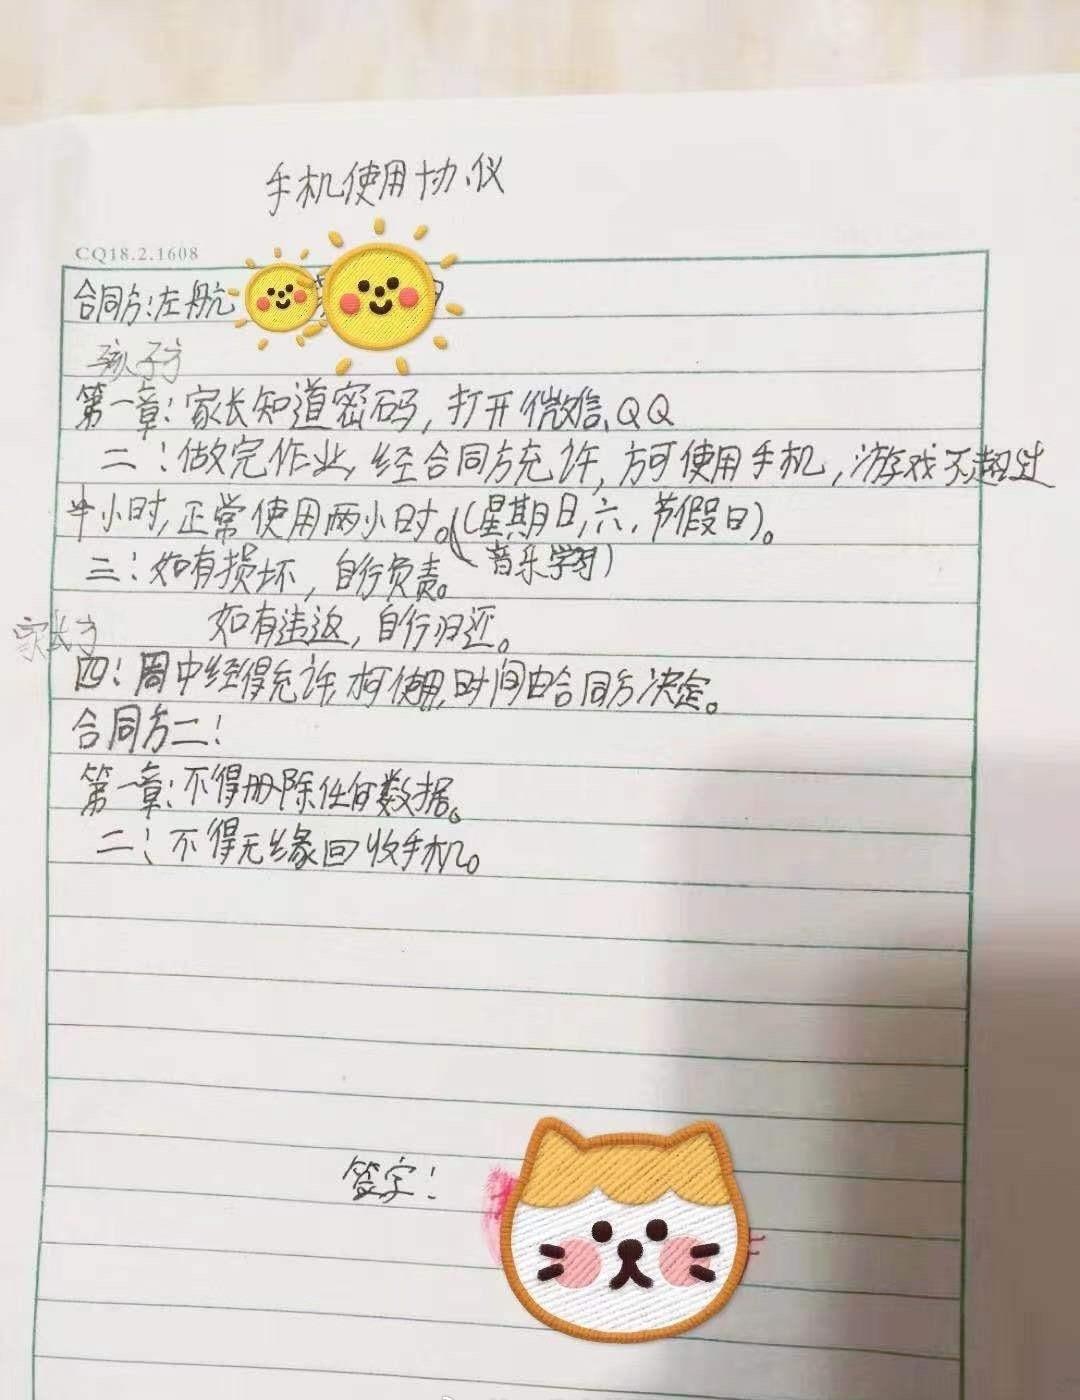 手机使用协仪
CQ18.2.1608
合同方:左航
孩子方
第一章:家长知道密码,打开微信、QQ
二:做完作业,经合同方充许,方可使用手机,游戏不超过
半小时,正常使用两小时。(星期日,六,节假日)。
(音乐学习)
三:如有损坏,自行负责。
如有违返,自行归还。
家长方
四:周中经得充许,可使用,时间由合同方决定。
合同方二:
第一章:不得册除任何数据。
二:不得无缘回收手机。
签字: